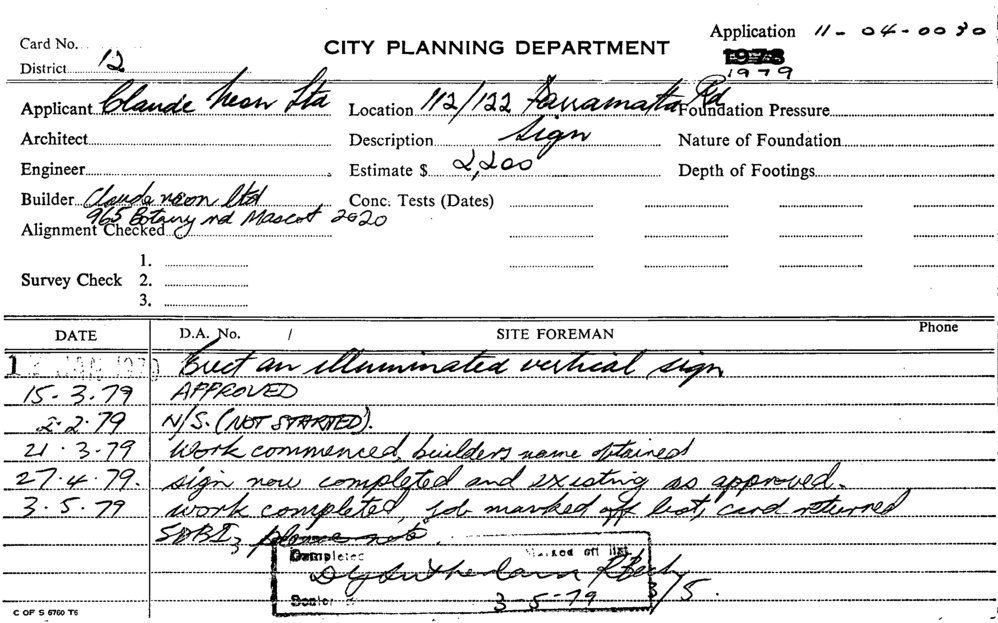 Application 11-04-0030
Card No.
CITY PLANNING DEPARTMENT
1978
District 12
1979
Applicant Claude Neon Ltd
Location 112/122 Parramatta Rd
Foundation Pressure
Architect
Description Sign
Nature of Foundation
Engineer
Estimate $ 2,200
Depth of Footings
Builder Claude neon Ltd
Conc. Tests (Dates)
965 Botany rd Mascot 2020
Alignment Checked
1.
Survey Check 2.
3.
DATE D.A. No. / SITE FOREMAN Phone
Erect an illuminated vertical sign
15-3.79 APPROVED
2.2.79 N/S. (NOT STARTED).
21.3.79 Work commenced, builders name obtained
27.4.79. sign now completed and existing as approved.
3.5.79 work completed, job marked off list, card returned
SDBI, please note.
Completed Marked off list
3/5.
Senior
3-5-79
C OF S 6760 T6